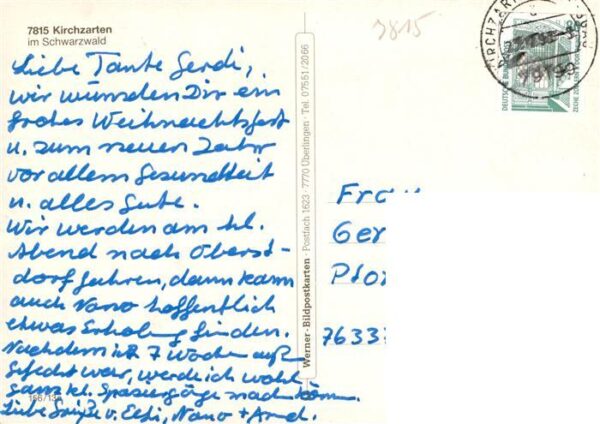 7815 Kirchzarten
im Schwarzwald
3815
Liebe Tante Gerdi,
wir wünschen Dir ein
frohes Weihnachtsfest
u. zum neuen Jahr
vor allem Gesundheit
u. alles Gute.
Wir werden am hl.
Abend nach Oberst-
dorf fahren, dann kann
auch Nano hoffentlich
etwas Erholung finden.
Nachdem ich 7 Wochen außer
Gefecht war, werde ich wohl
ganz kl. Spaziergänge mach können.
Liebe Grüße v. Elfi, Nano +
Werner-Bildpostkarten · Postfach 1623 · 7770 Überlingen · Tel. 07551/2066
KIRCHZARTEN
DEUTSCHE BUNDESPOST
ZECHE ZOLLERN II DORTMUND
Fra
Ger
Plo
7633